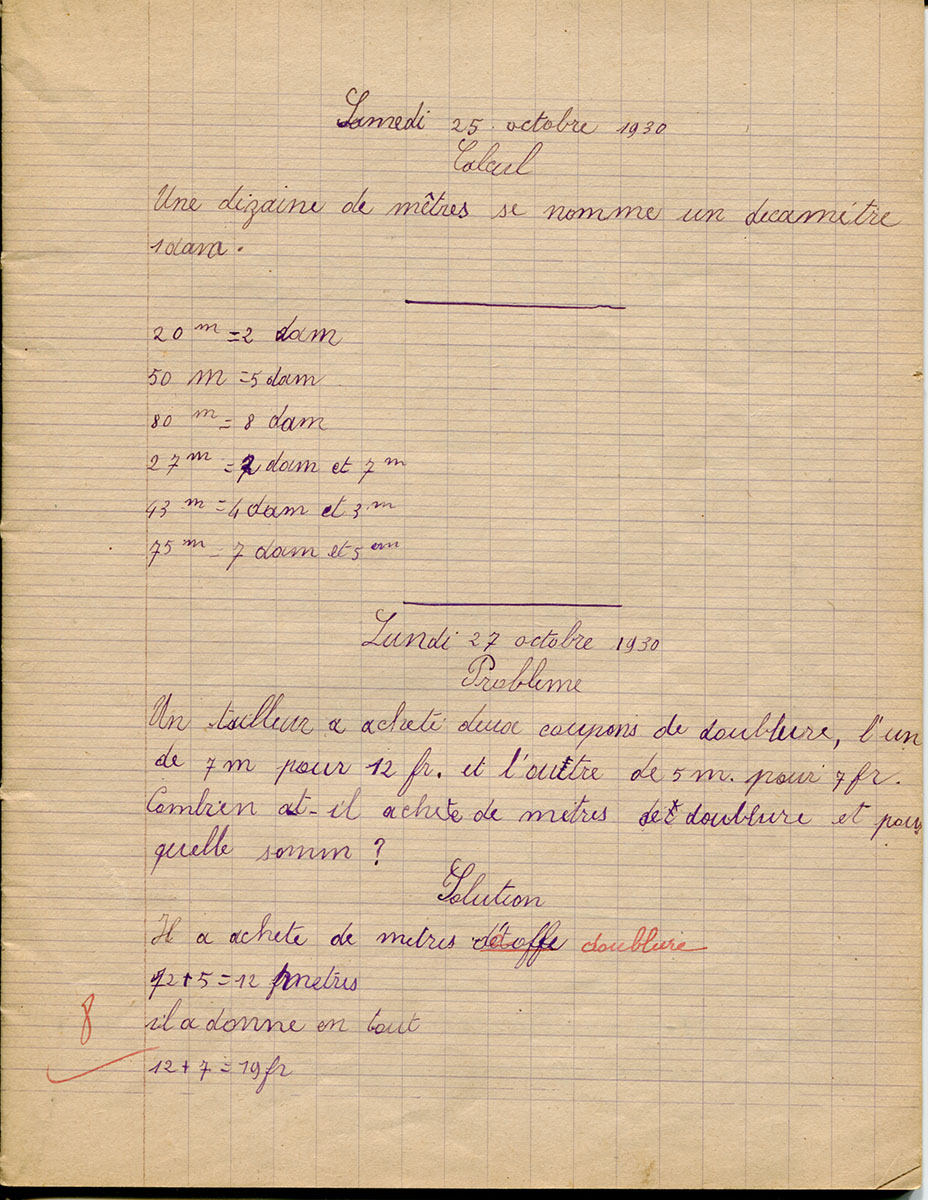 Samedi 25 octobre 1930
Calcul
Une dizaine de mêtres se nomme un decamètre
1 dam.
20 m = 2 dam
50 m = 5 dam
80 m = 8 dam
27 m = 2 dam et 7 m
43 m = 4 dam et 3 m
75 m = 7 dam et 5 m
Lundi 27 octobre 1930
Probleme
Un tailleur a acheté deux coupons de doublure, l'un
de 7 m pour 12 fr. et l'autre de 5 m. pour 7 fr.
Combien at-il achete de metres de doublure et pour
quelle somm ?
Solution
Il a achete de metres d'étoffe doublure
7 + 5 = 12 metres
il a donne en tout
8
12 + 7 = 19 fr